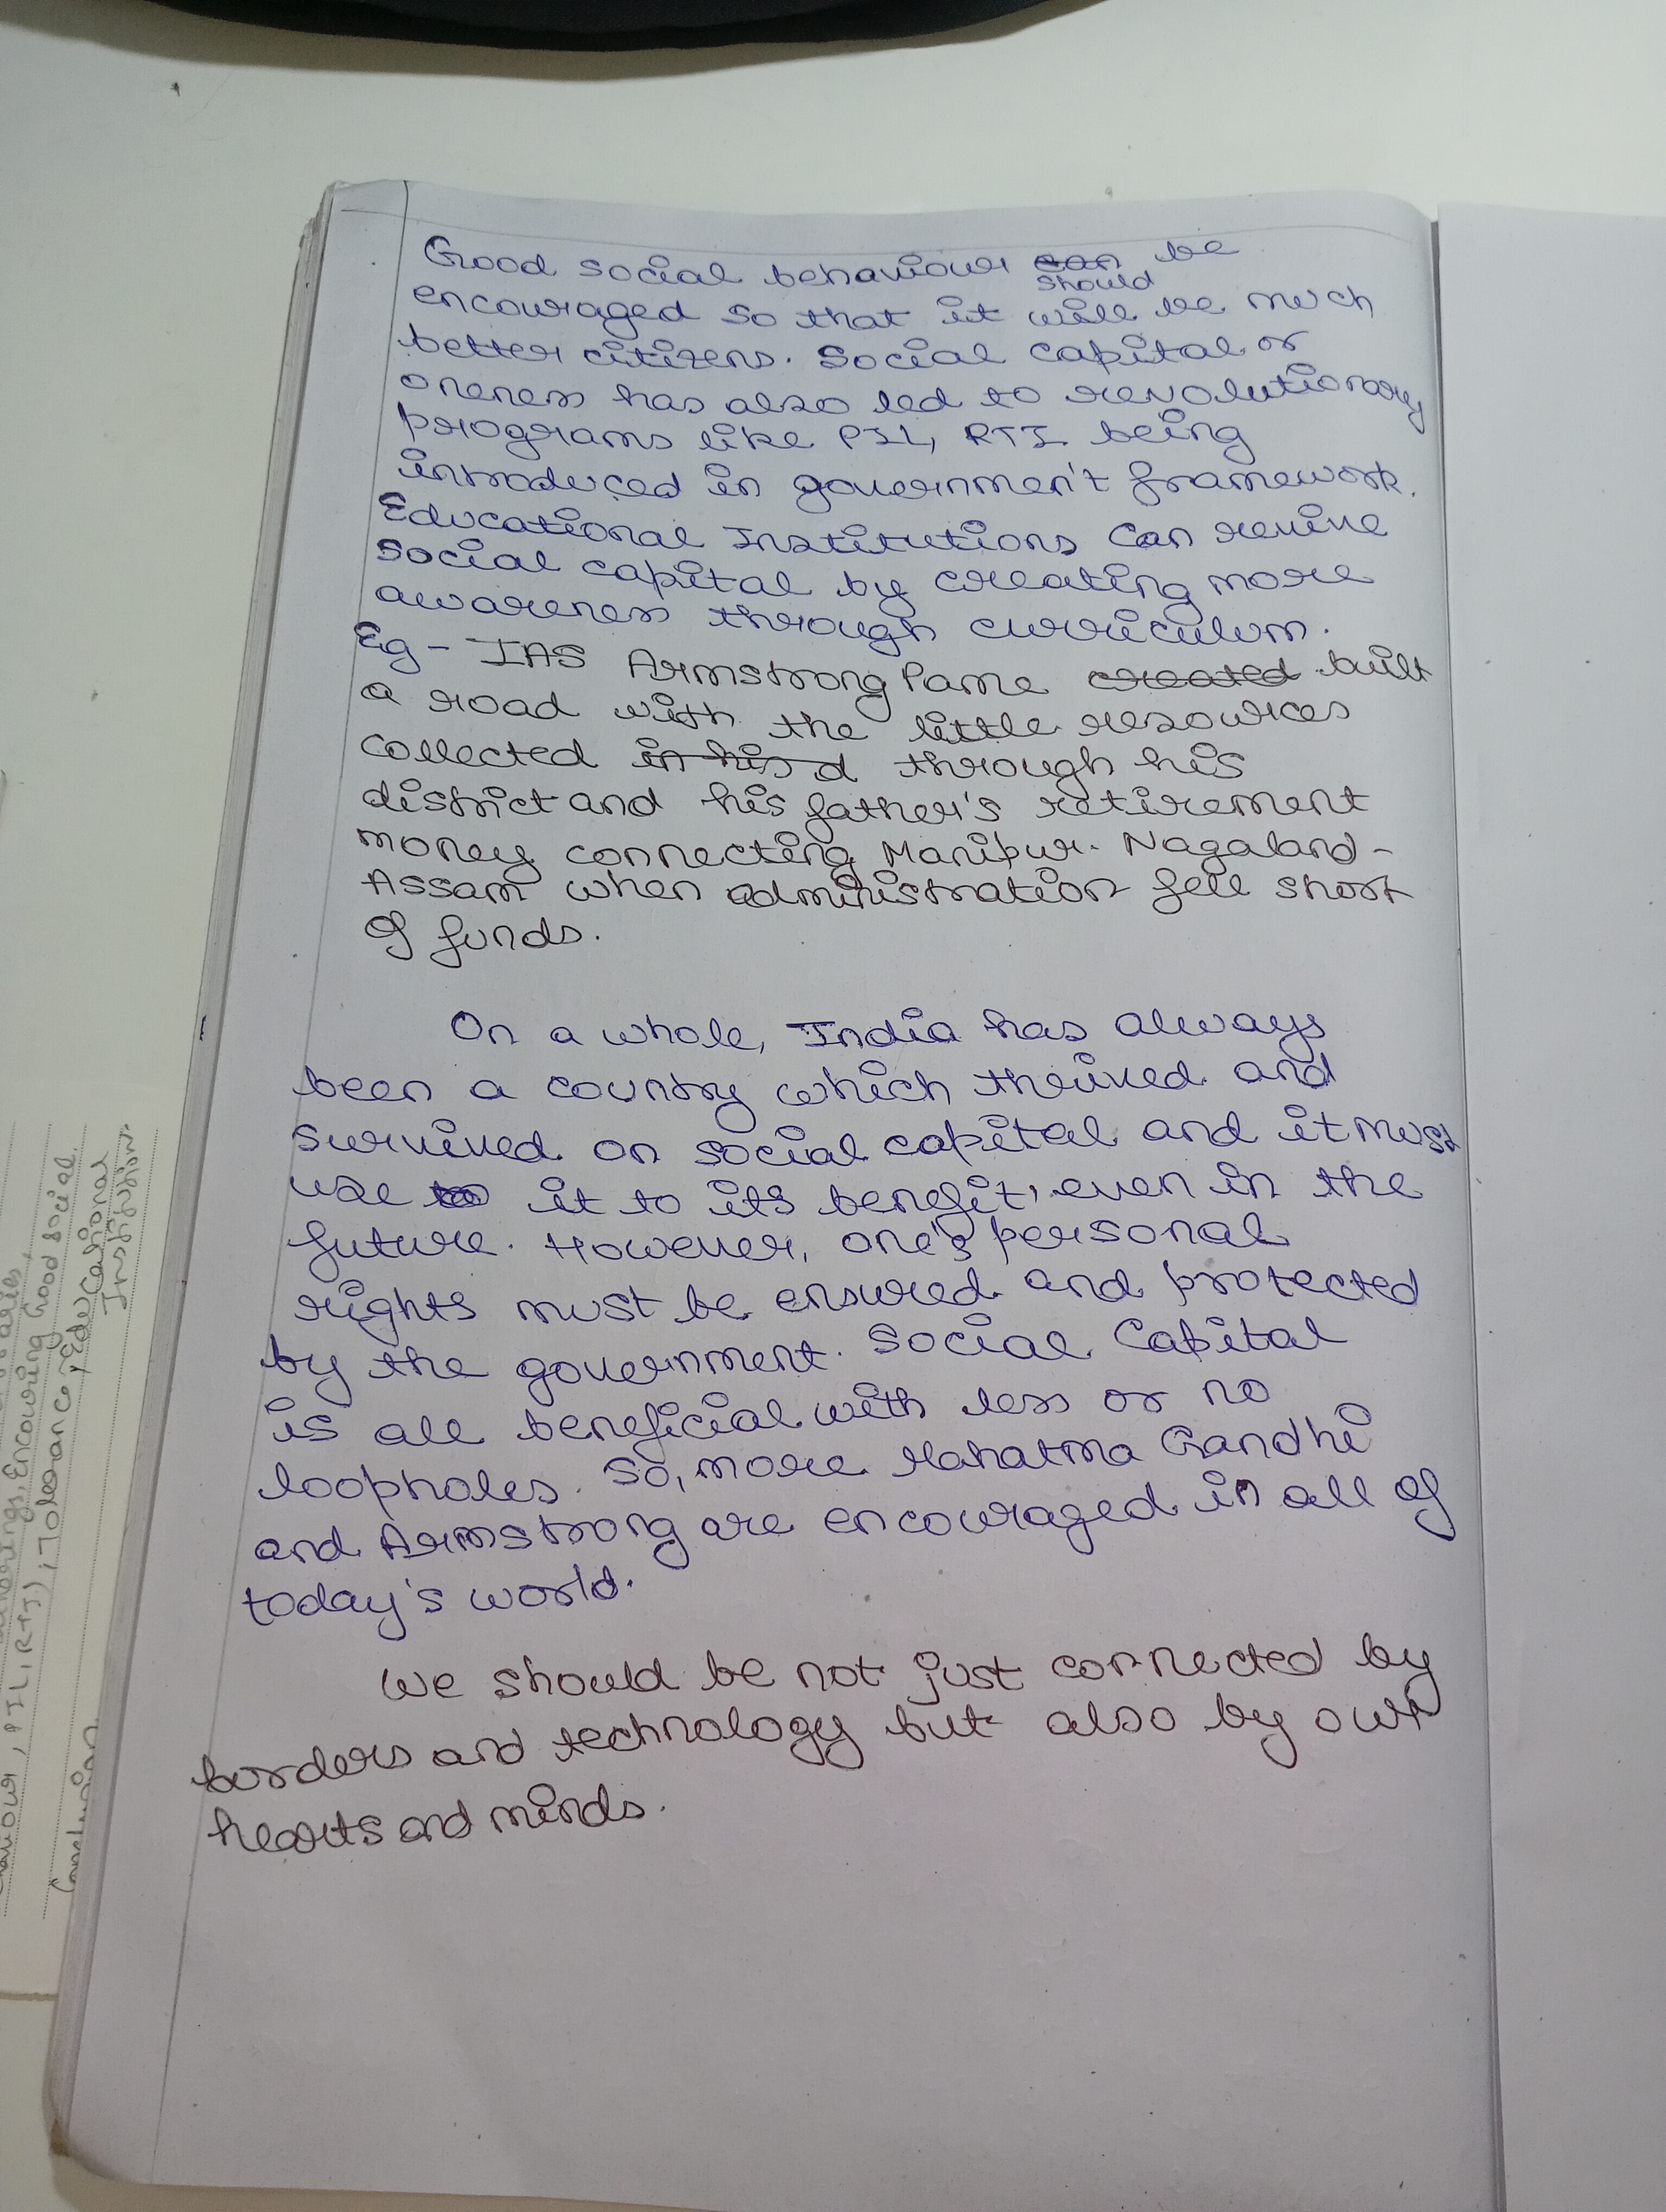 Good social behaviour can be
should
encouraged so that it will be much
better citizens. Social capital or
oneness has also led to revolutionary
programs like PIL, RTI being
introduced in government framework.
Educational Institutions can revive
social capital by creating more
awareness through curriculum.
Eg - IAS Armstrong Pame created built
a road with the little resources
collected in his d through his
district and his father's retirement
money connecting Manipur. Nagaland -
Assam when administration fell short
of funds.
On a whole, India has always
been a country which thrived and
survived on social capital and it must
use it to its benefit, even in the
future. However, one's personal
rights must be ensured and protected
by the government. Social Capital
is all beneficial with less or no
loopholes. So, more Mahatma Gandhi
and Armstrong are encouraged in all of
today's world.
We should be not just connected by
borders and technology but also by our
hearts and minds.
Encouring Good social
PIL, RTI), Tolerance, Educational
Institution.
Conclusion